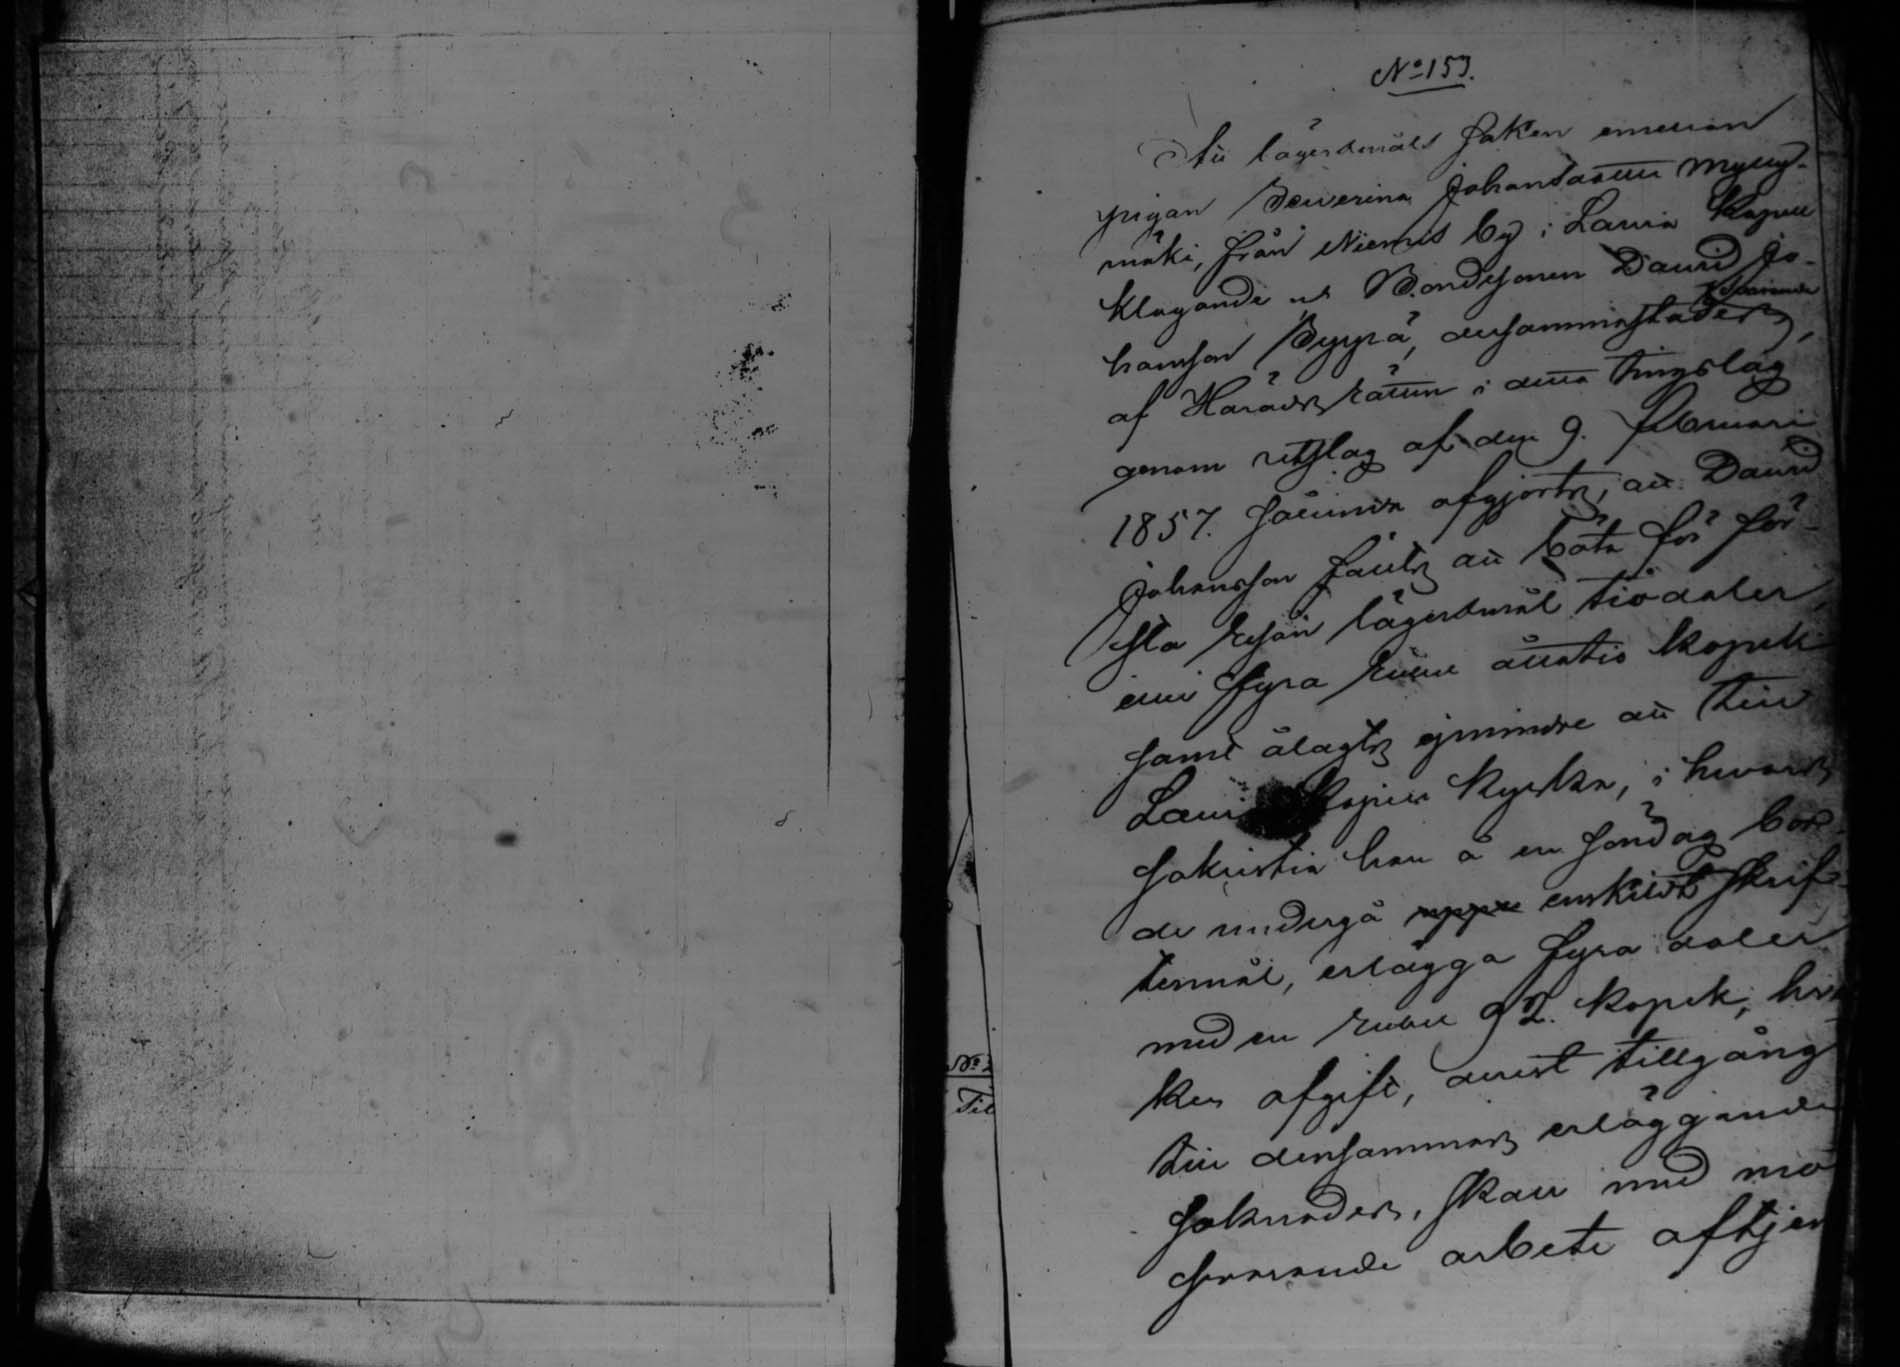 No 153.
Att lägersmåls saken emellan
pigan Sewerina Johansdotter Mylly-
mäki, från Niemis by i Lavia Kapell
klagande och Bondesonen David Jo-
svarande
hansson Pyyrä, dersammastädes,
af Häradsrätten i detta tingslag
genom utslag af den 9. februari
1857. sålunda afgjorts, att David
Johansson fällts att böta för för-
sta resan lägersmål tio daler,
eller fyra rubel åttatio kopek
samt ålagts ejmindre att till
Lavia Kapells kyrka, i hvars
sakristia han å en söndag bor-
de undergå enskildt skrif-
termål, erlägga fyra daler
med en rubel 92. kopek, hvil-
ken afgift, derest tillgång
till densammas erläggande
saknades, skall med mot-
svarande arbete aftjen
No 2
Til